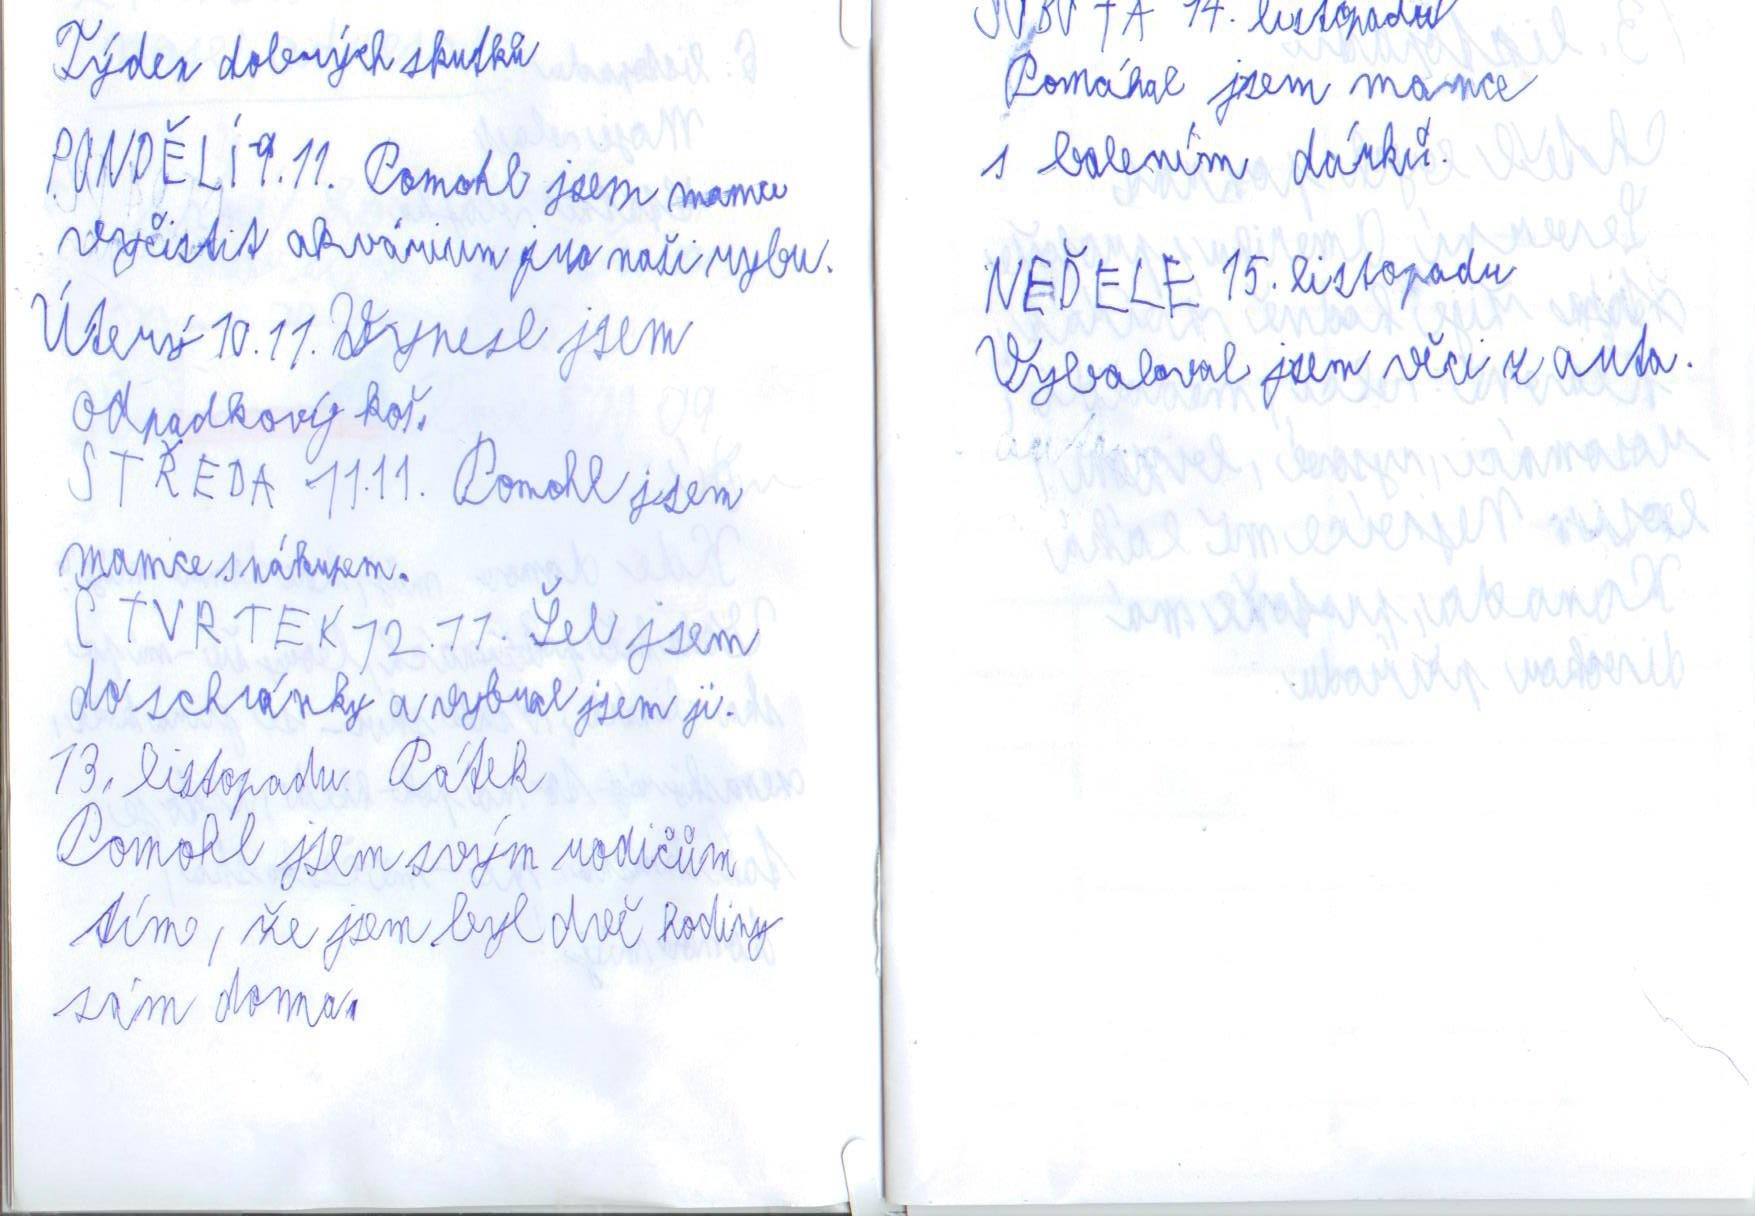 Týden dobrých skutků
PONDĚLÍ 9.11. Pomohl jsem mamce
vyčistit akvárium pro naši rybu.
Úterý 10.11. Vynesl jsem
odpadkový koš.
STŘEDA 11.11. Pomohl jsem
mamce s nákupem.
ČTVRTEK 12.11. Šel jsem
do schránky a vybral jsem ji.
13. listopadu Pátek
Pomohl jsem svým rodičům
tím, že jsem byl dvě hodiny
sám doma.
SOBOTA 14. listopadu
Pomáhal jsem mamce
s balením dárků.
NEDĚLE 15. listopadu
Vybaloval jsem věci z auta.